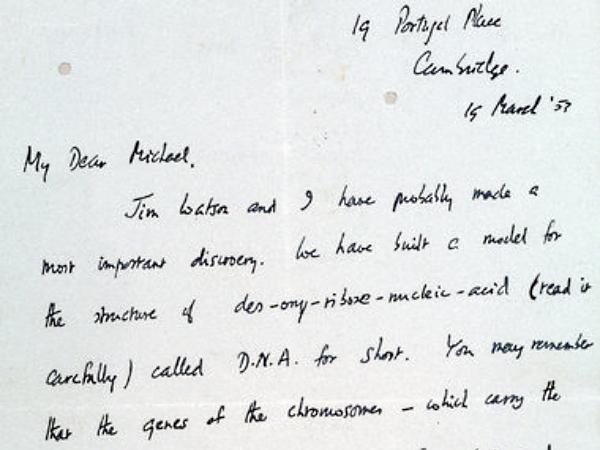 19 Portugal Place
Cambridge.
19 March '53
My Dear Michael,
Jim Watson and I have probably made a
most important discovery. We have built a model for
the structure of des-oxy-ribose-nucleic-acid (read it
carefully) called D.N.A. for short. You may remember
that the genes of the chromosomes – which carry the